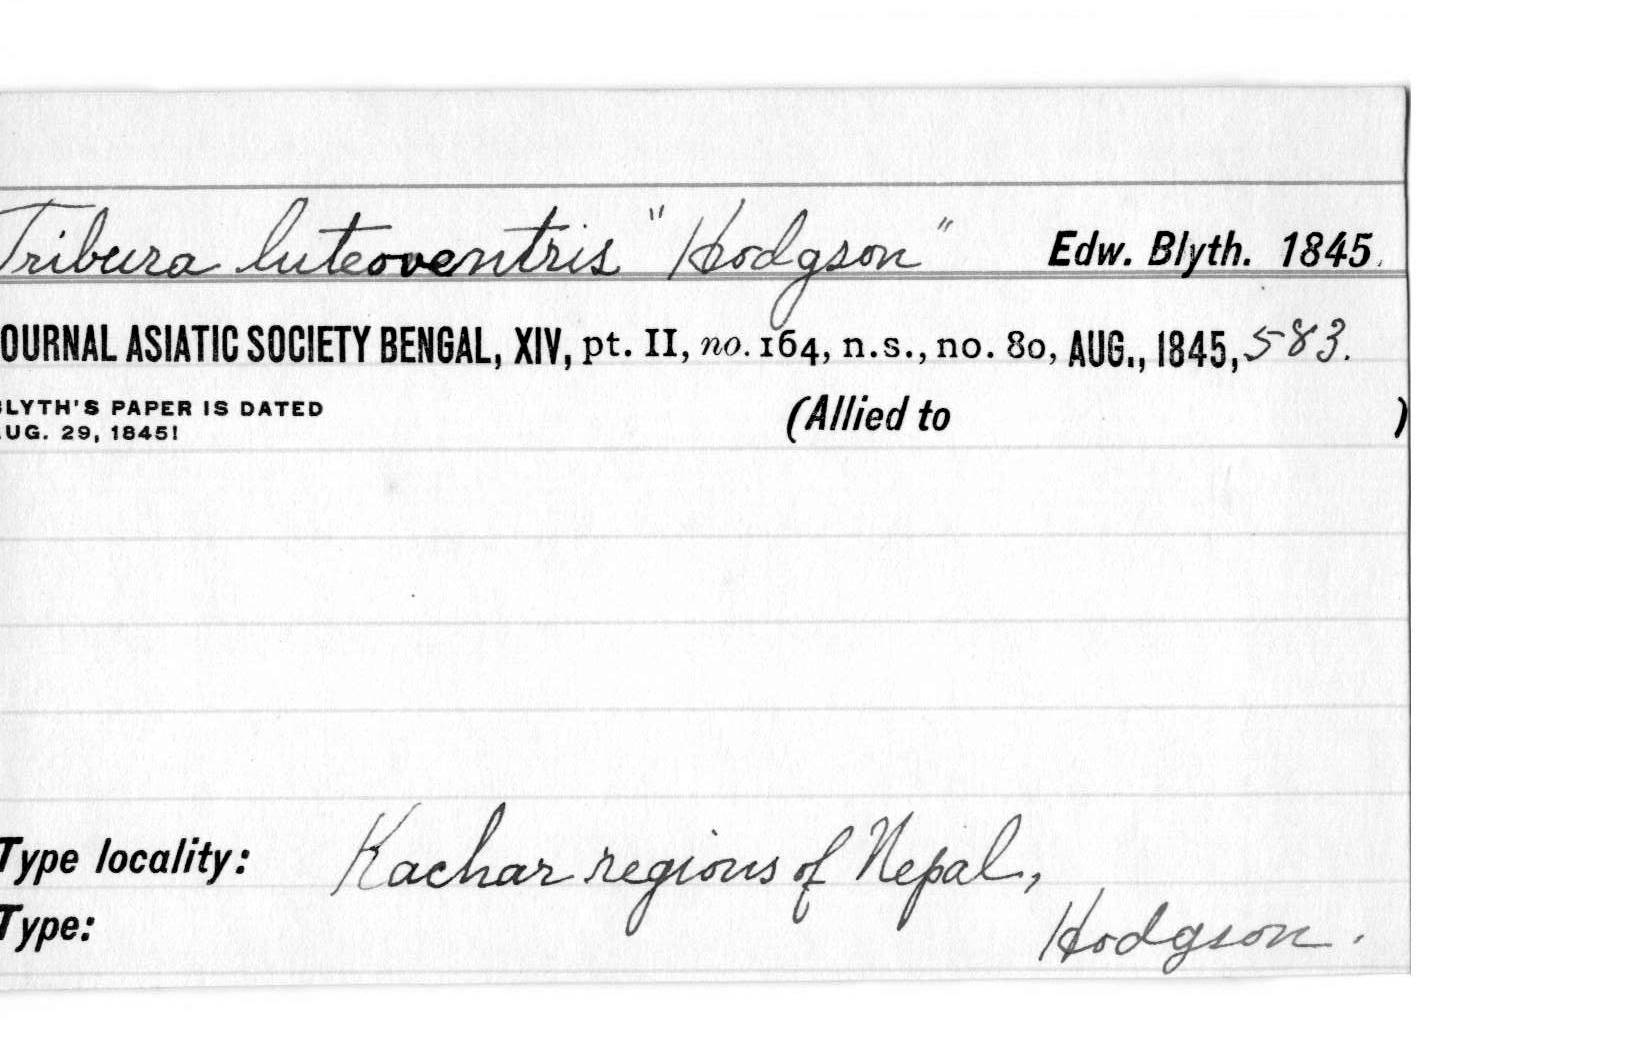 Tribura luteoventris "Hodgson" Edw. Blyth. 1845.
OURNAL ASIATIC SOCIETY BENGAL, XIV, pt. II, no. 164, n.s., no. 80, AUG., 1845, 583.
LYTH'S PAPER IS DATED (Allied to )
UG. 29, 1845!
Type locality: Kachar regions of Nepal,
Type: Hodgson.